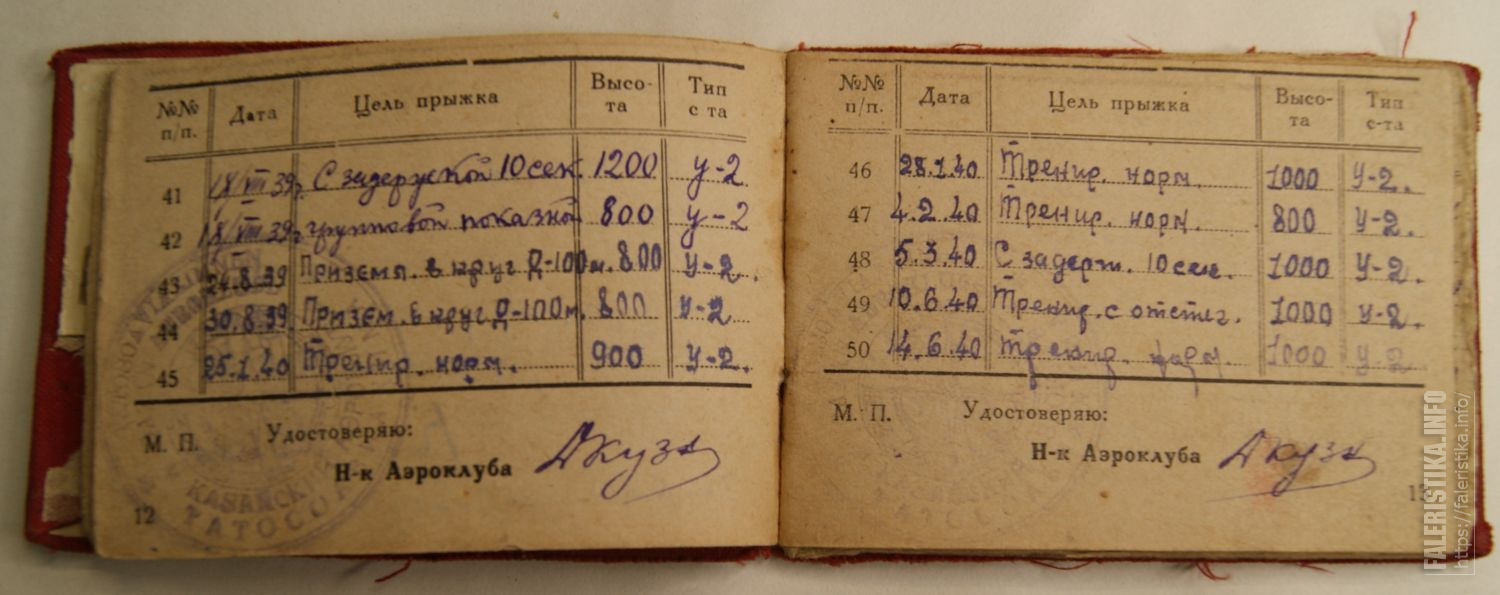 №№ п/п. Дата Цель прыжка Высо-та Тип с-та
41 18/VIII 39г. С задержкой 10 сек. 1200 У-2
42 18/VIII 39г. групповой показной 800 У-2
43 24.8.39 Призем. в круг Д-100м. 800 У-2.
44 30.8.39 Призем. в круг Д-100м. 800 У-2
45 25.1.40 Тренир. норм. 900 У-2.
М. П. Удостоверяю:
Н-к Аэроклуба
KASANCKI
PATOCO
12
№№ п/п. Дата Цель прыжка Высо-та Тип с-та
46 28.1.40 Тренир. норм. 1000 У-2.
47 4.2.40 Тренир. норм. 800 У-2.
48 5.3.40 С задерж. 10 сек. 1000 У-2.
49 10.6.40 Тренир. с отстег. 1000 У-2.
50 14.6.40 Тренир. норм. 1000 У-2
М. П. Удостоверяю:
Н-к Аэроклуба
13
FALERISTIKA.INFO
https://faleristika.info/